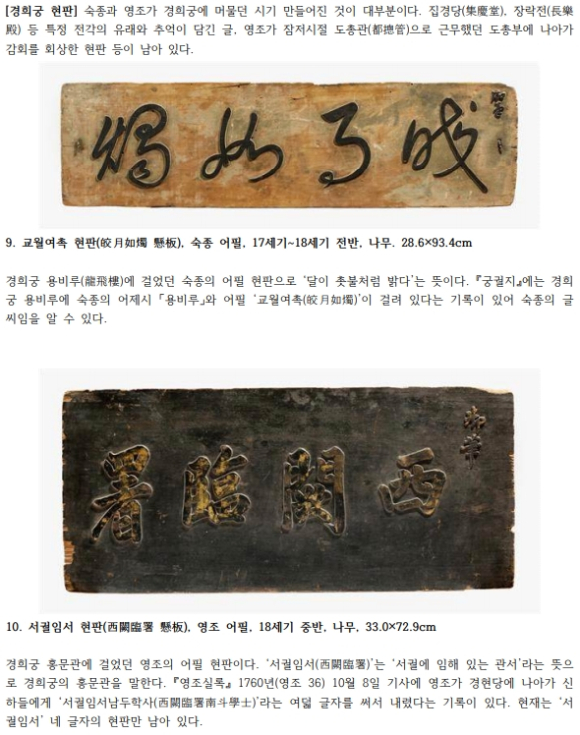 [경희궁 현판] 숙종과 영조가 경희궁에 머물던 시기 만들어진 것이 대부분이다. 집경당(集慶堂), 장락전(長樂
殿) 등 특정 전각의 유래와 추억이 담긴 글, 영조가 잠저시절 도총관(都摠管)으로 근무했던 도총부에 나아가
감회를 회상한 현판 등이 남아 있다.
皎月如燭
9. 교월여촉 현판(皎月如燭 懸板), 숙종 어필, 17세기~18세기 전반, 나무. 28.6×93.4cm
경희궁 용비루(龍飛樓)에 걸었던 숙종의 어필 현판으로 ‘달이 촛불처럼 밝다’는 뜻이다. 『궁궐지』에는 경희
궁 용비루에 숙종의 어제시 「용비루」와 어필 ‘교월여촉(皎月如燭)’이 걸려 있다는 기록이 있어 숙종의 글
씨임을 알 수 있다.
御筆
西闕臨署
10. 서궐임서 현판(西闕臨署 懸板), 영조 어필, 18세기 중반, 나무, 33.0×72.9cm
경희궁 홍문관에 걸었던 영조의 어필 현판이다. ‘서궐임서(西闕臨署)’는 ‘서궐에 임해 있는 관서’라는 뜻으
로 경희궁의 홍문관을 말한다. 『영조실록』 1760년(영조 36) 10월 8일 기사에 영조가 경현당에 나아가 신
하들에게 ‘서궐임서남두학사(西闕臨署南斗學士)’라는 여덟 글자를 써서 내렸다는 기록이 있다. 현재는 ‘서
궐임서’ 네 글자의 현판만 남아 있다.